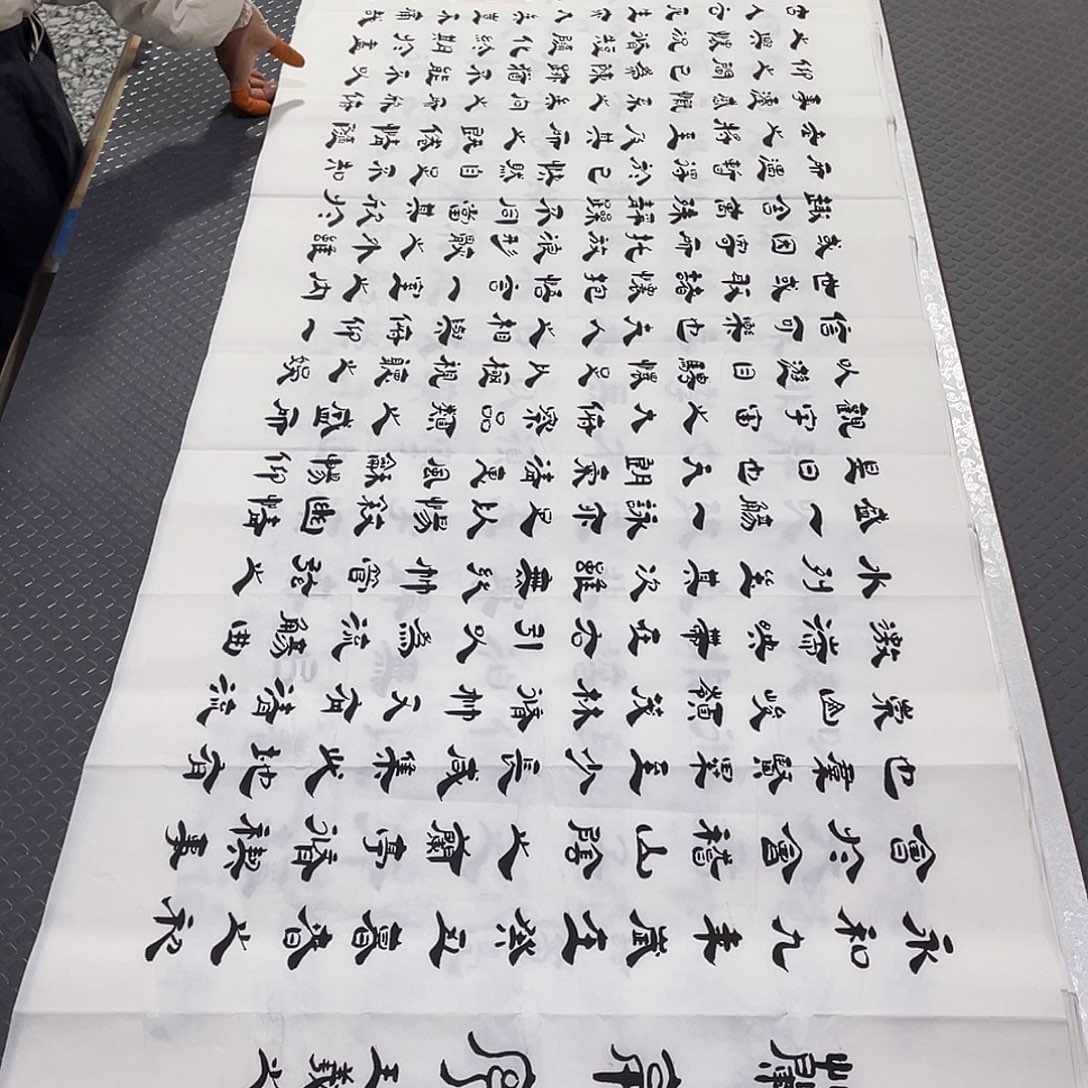 蘭亭序 王羲之
永和九年歲在癸丑暮春之初
會於會稽山陰之蘭亭脩禊事
也羣賢畢至少長咸集此地有
崇山峻領茂林脩竹又有清流
激湍映帶左右引以為流觴曲
水列坐其次雖無絲竹管弦之
盛一觴一詠亦足以暢敘幽情
是日也天朗氣清惠風和暢仰
觀宇宙之大俯察品類之盛所
以遊目騁懷足以極視聽之娛
信可樂也夫人之相與俯仰一
世或取諸懷抱悟言一室之內
或因寄所託放浪形骸之外雖
趣舍萬殊靜躁不同當其欣於
所遇暫得於己快然自足不知
老之將至及其所之既倦情隨
事遷感慨係之矣向之所欣俛
仰之間已為陳跡猶不能不以
之興懷況脩短隨化終期於盡
古人云死生亦大矣豈不痛哉